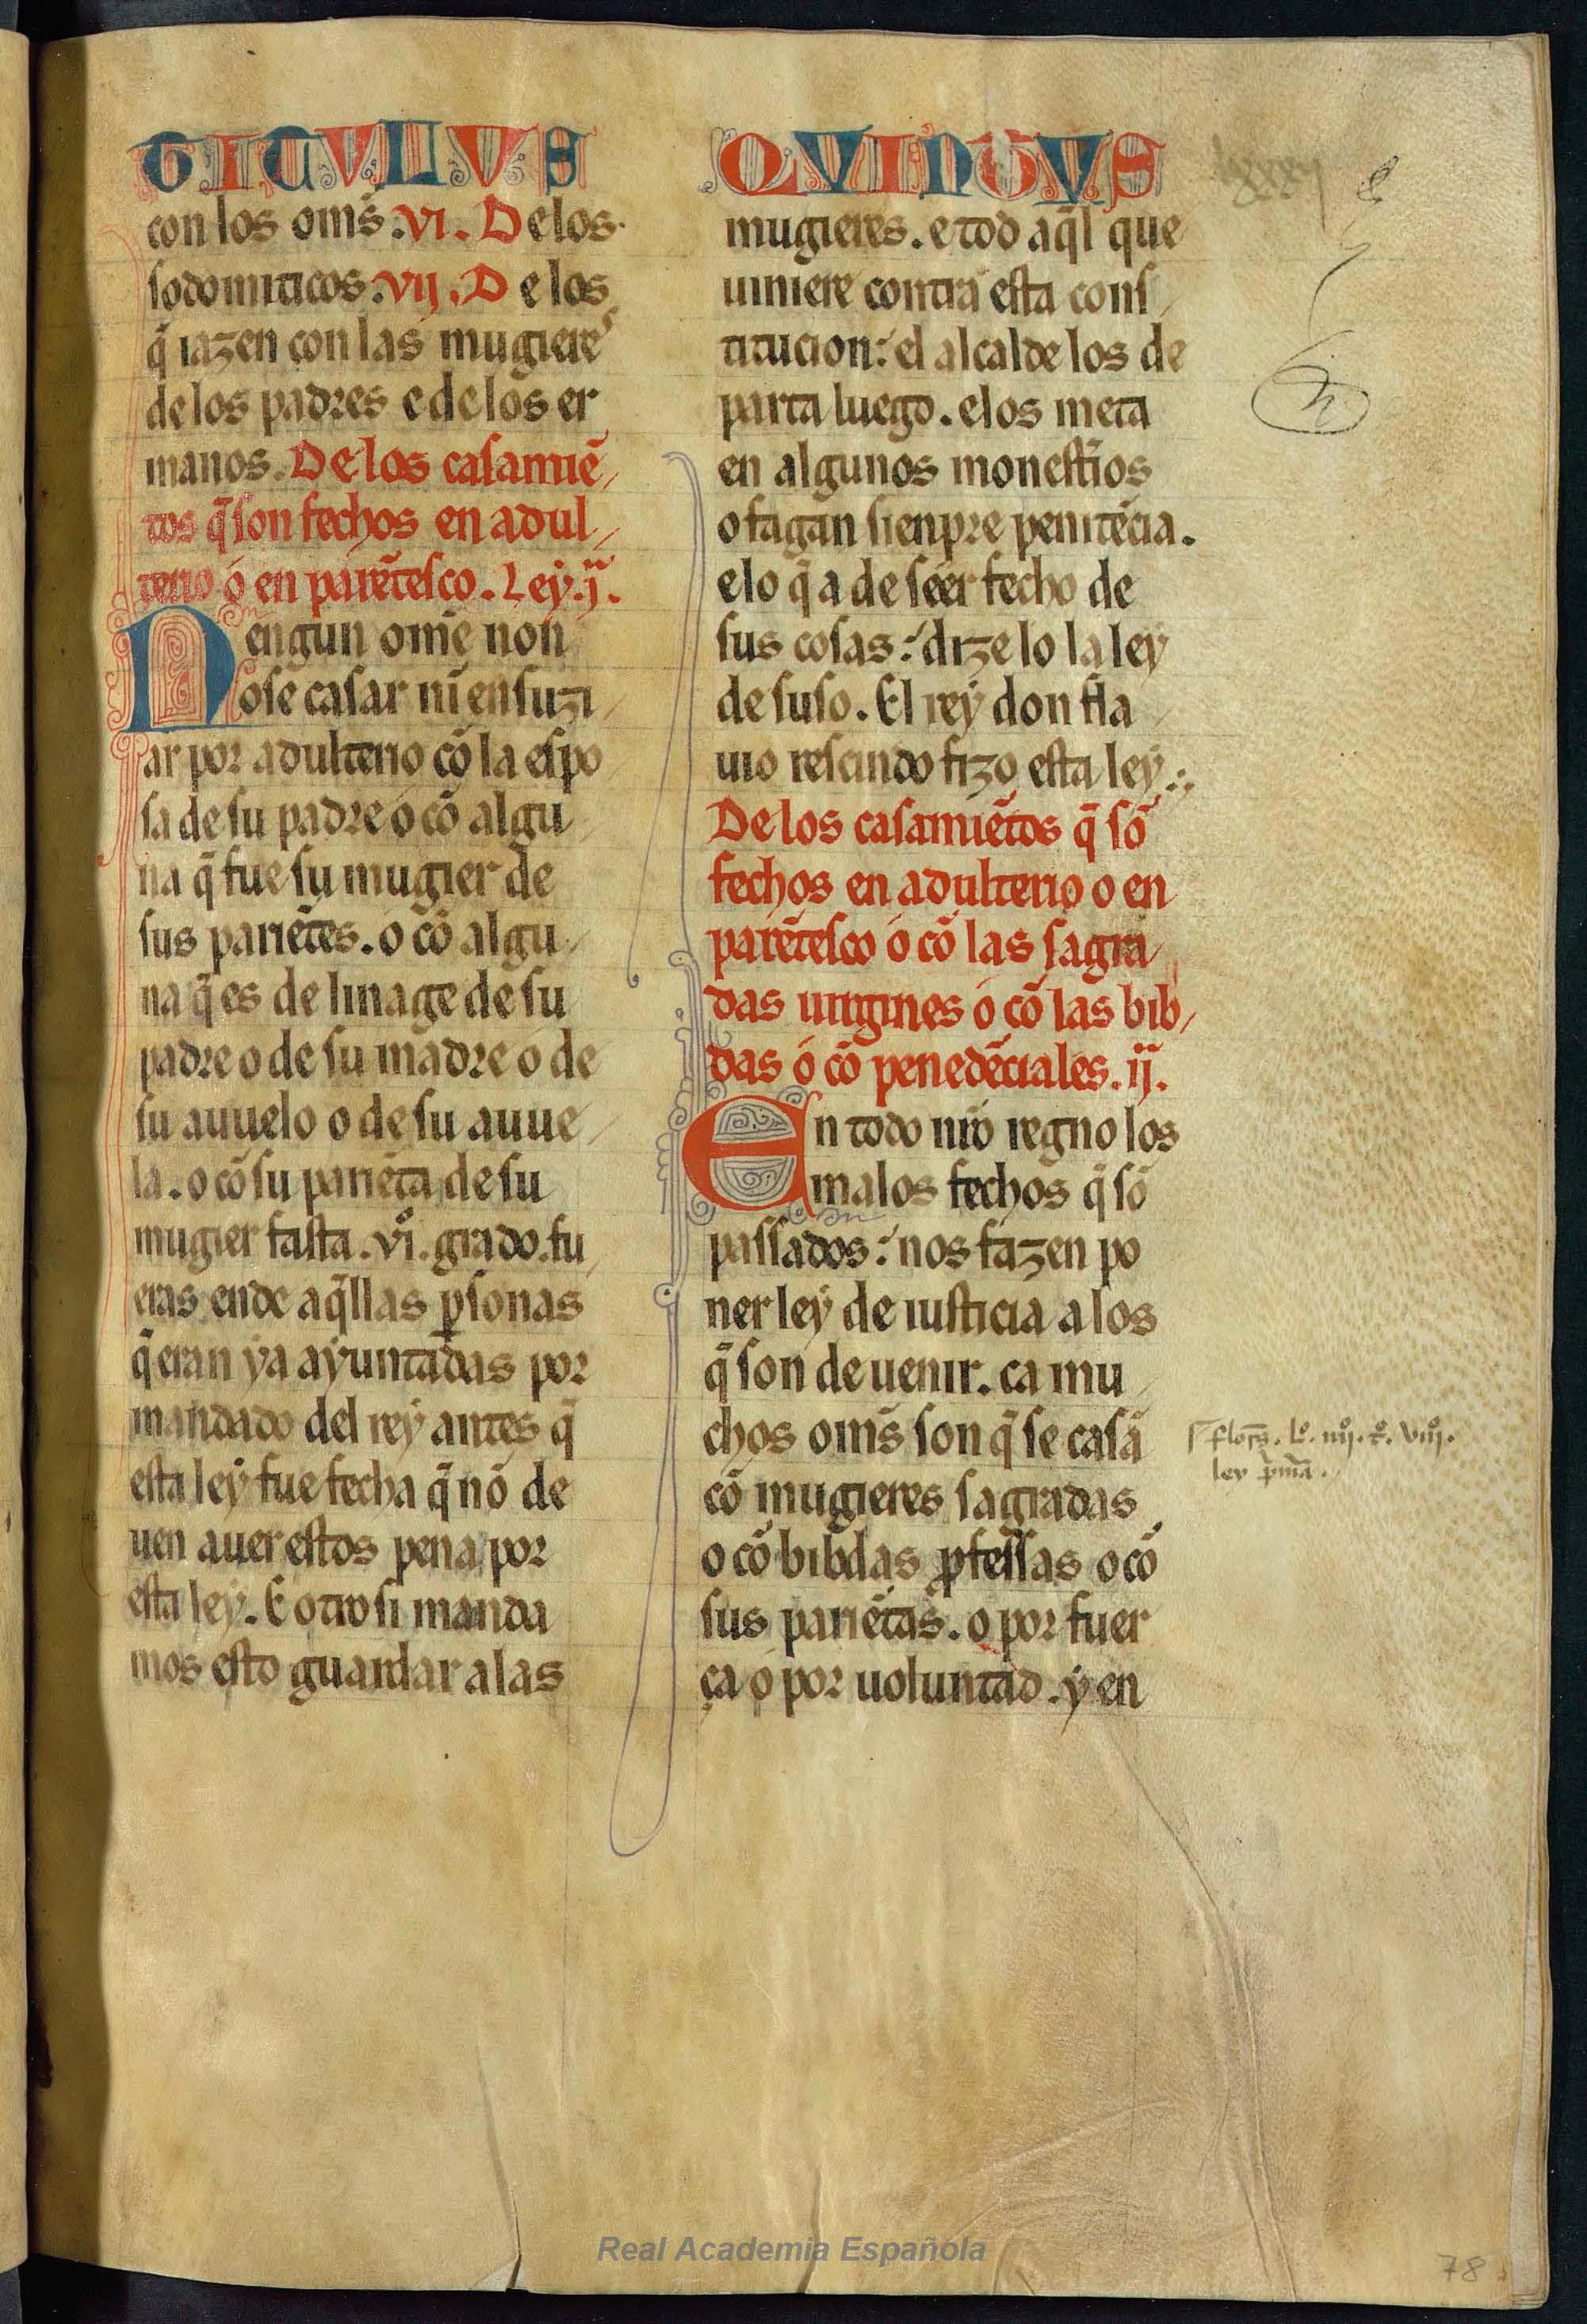 TITVLVS
con los om̃s .VI. De los
sodomiticos .VIJ. De los
q̃ iazen con las mugieres
de los padres e de los er
manos. De los casamiẽ
tos q̃ son fechos en adul
terio o en parẽtesco. Ley .j̈.
Nengun ome non
ose casar nĩ ensuzi
ar por adulterio cõ la espo
sa de su padre o cõ algu
na q̃ fue su mugier de
sus pariẽtes. o cõ algu
na q̃ es de linage de su
padre o de su madre o de
su auuelo o de su auue
la. o cõ su pariẽta de su
mugier fasta .vi.º grado. fu
eras ende aq̃llas ꝑsonas
q̃ eran ya ayuntadas por
mandado del rey antes q̃
esta ley fue fecha q̃ nõ de
uen auer estos pena por
esta ley. E otrosi manda
mos esto guardar a las
QVINTVS
mugieres. e tod aq̃l que
uiniere contra esta cons
titucion: el alcalde los de
parta luego. e los meta
en algunos monest̃ios
o fagan sienpre penitẽcia.
e lo q̃ a de seer fecho de
sus cosas: dize lo la ley
de suso. El rey don fla
uio rescindo fizo esta ley.
De los casamiẽtos q̃ sõ
fechos en adulterio o en
parẽtesco o cõ las sagra
das uirgines o cõ las bib
das o cõ penedẽciales. ij.
En todo nr̃o regno los
malos fechos q̃ sõ
passados: nos fazen po
ner ley de iusticia a los
q̃ son de uenir. ca mu
chos om̃s son q̃ se casã
cõ mugieres sagradas
o cõ bibdas ꝓfessas o cõ
sus pariẽtas. o por fuer
ça o por uoluntad. y en
flor̃s. lº. iiij. tº. viij.
ley p̃ma.
78
Real Academia Española